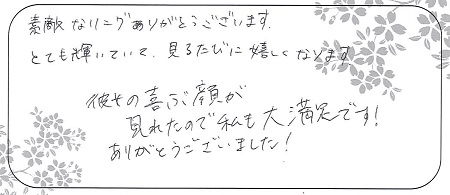 素敵なリングありがとうございます.
とても輝いていて、見るたびに嬉しくなります
彼女の喜ぶ顔が
見れたので私も大満足です!
ありがとうございました!